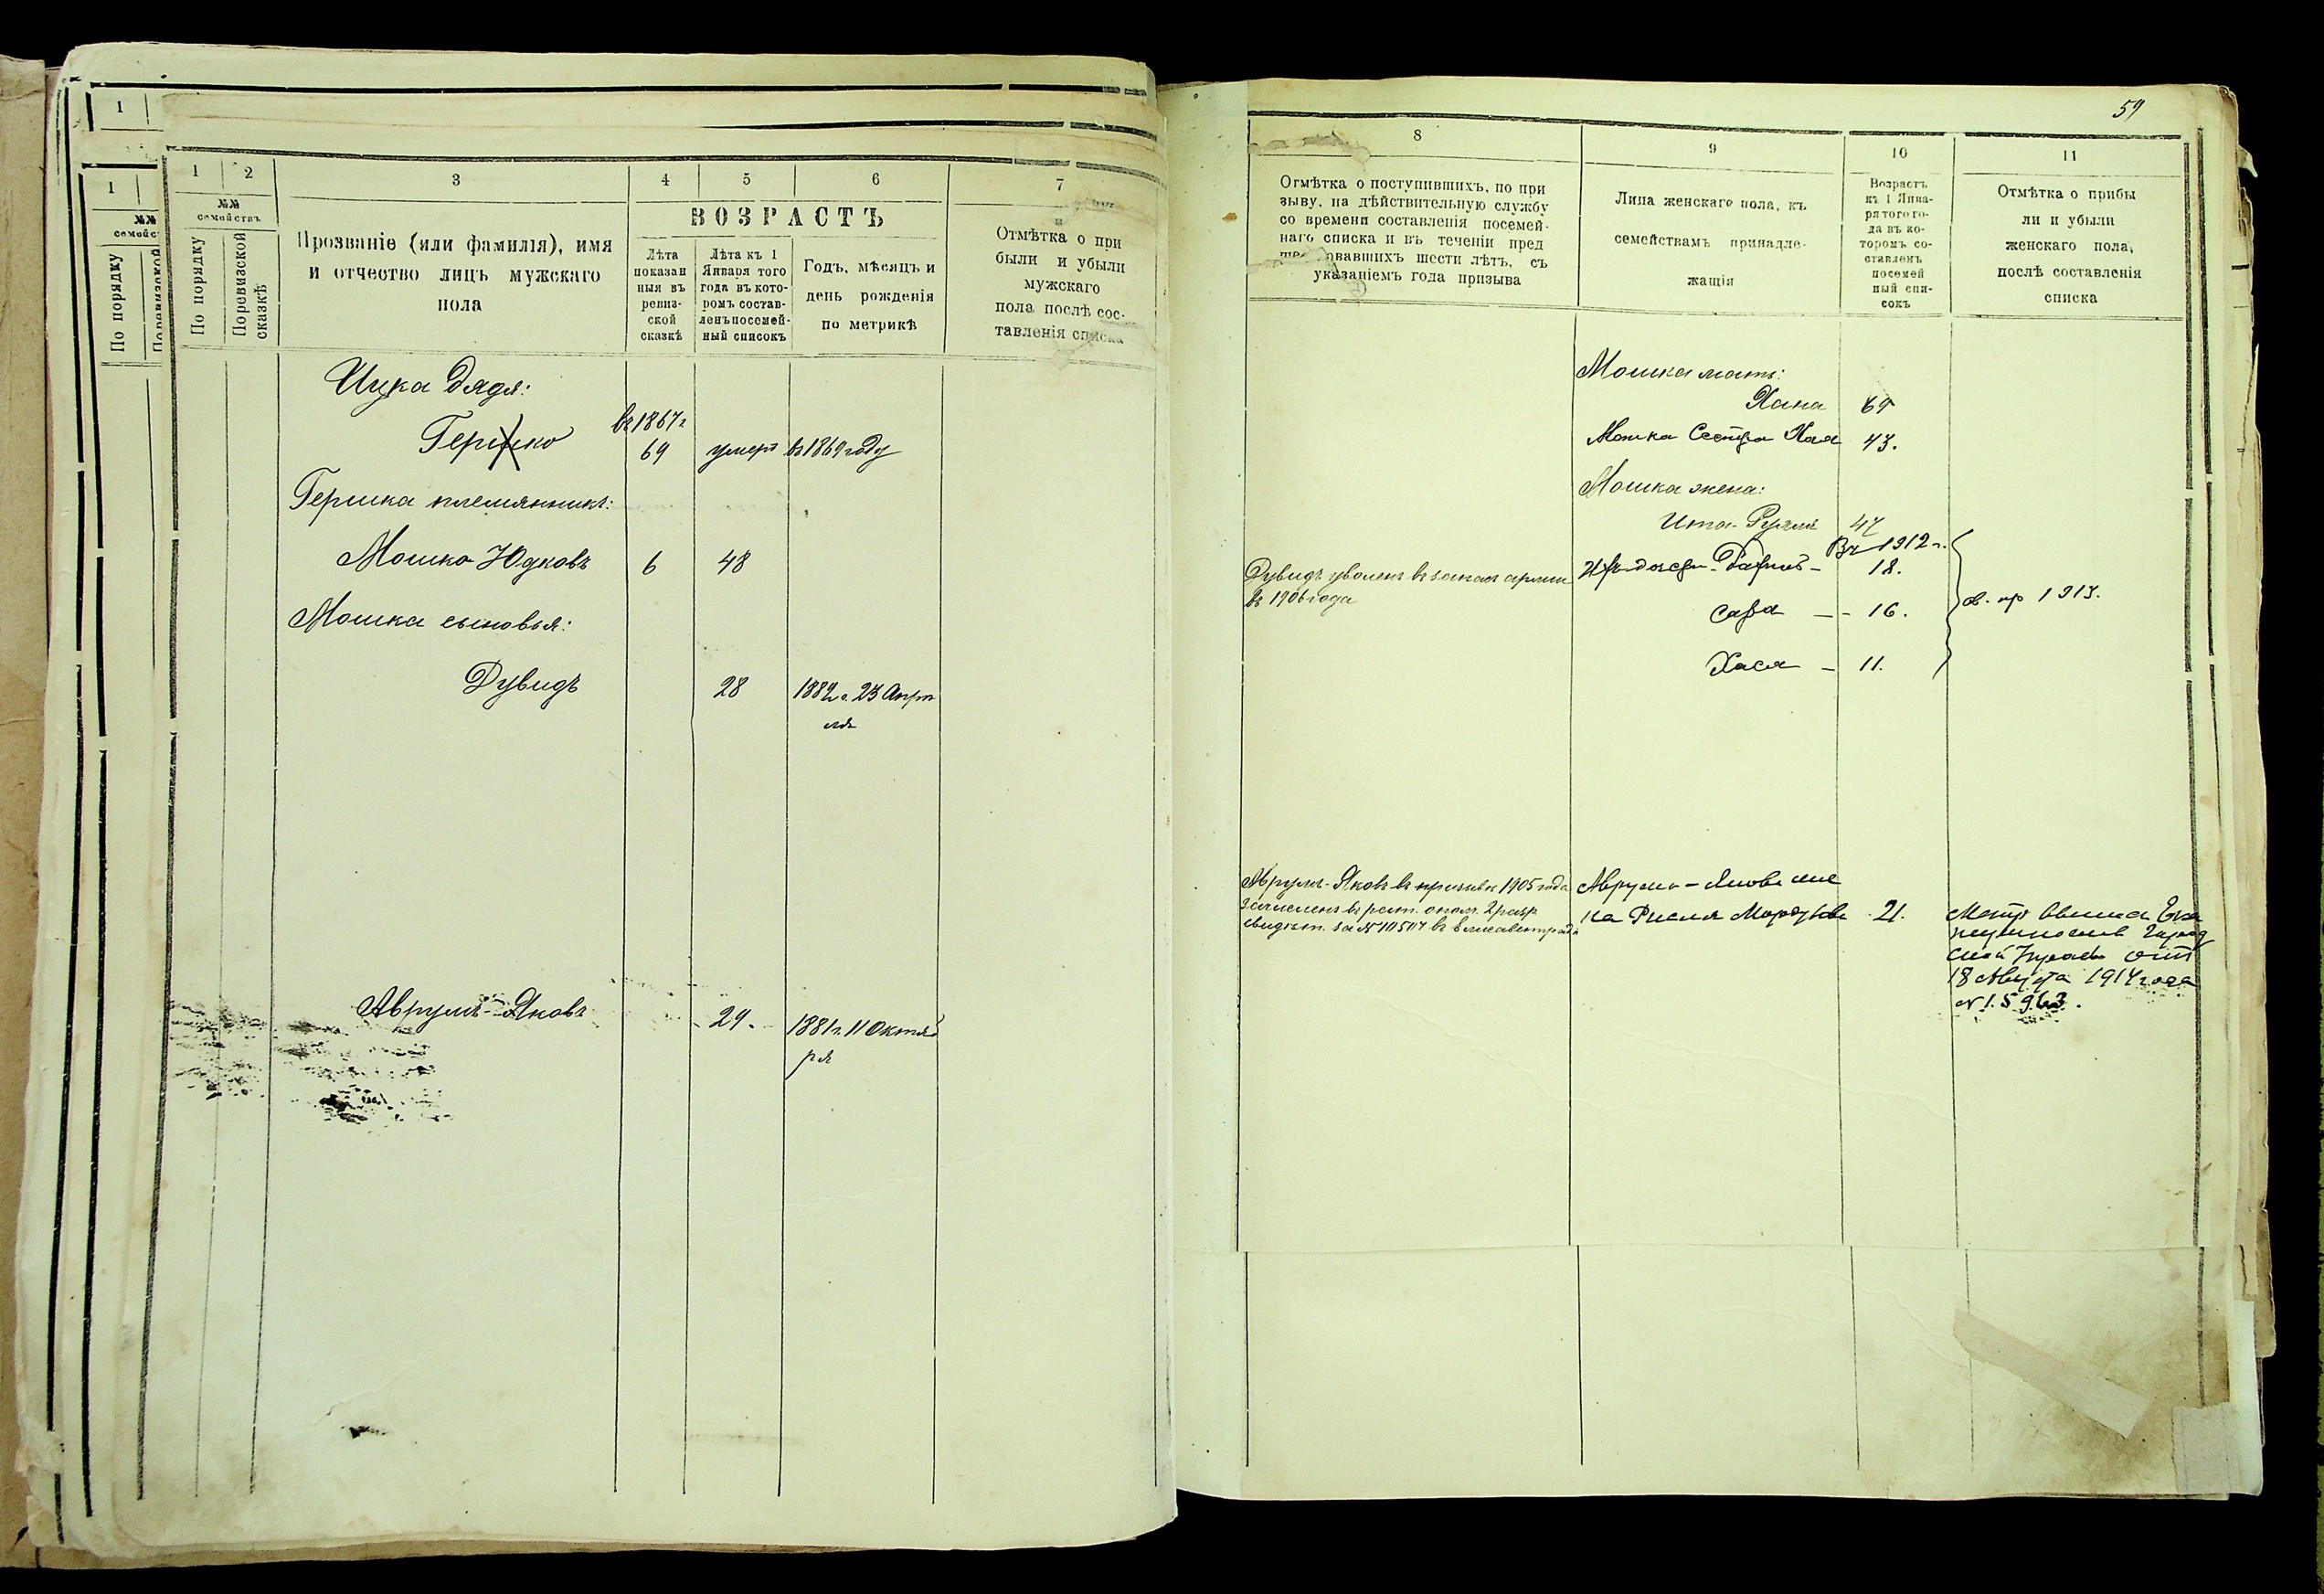 1
1
№№
По порядку
1 2 3 4 5 6 7
№№
семействъ
По порядку
Поревизской
сказкѣ
Прозваніе (или фамилія), имя
и отчество лицъ мужскаго
пола
ВОЗРАСТЪ
Лѣта
показан
ныя въ
ревиз-
ской
сказкѣ
Лѣта къ 1
Января того
года въ кото-
ромъ состав-
ленъ посемей-
ный списокъ
Годъ, мѣсяцъ и
день рожденія
по метрикѣ
Отмѣтка о при
были и убыли
мужскаго
пола послѣ сос-
тавленія списка
Ицка дядя:
въ 1867 г
Гершко 69 умеръ въ 1869 году
Гершка племянникъ:
Мошко Юдковъ 6 48
Мошка сыновья:
Дувидъ 28 1882 г. 23 Апрѣ
ля
Аврумъ-Яковъ 29. 1881 г. 11 Октяб
ря
59
8 9 10 11
Отмѣтка о поступившихъ, по при
зыву, на дѣйствительную службу
со времени составленія посемей-
наго списка и въ теченіи пред
шествовавшихъ шести лѣтъ, съ
указаніемъ года призыва
Лица женскаго пола, къ
семействамъ принадле-
жащія
Возрастъ
къ 1 Янва-
ря того го-
да въ ко-
торомъ со-
ставленъ
посемей
ный спи-
сокъ
Отмѣтка о прибы
ли и убыли
женскаго пола,
послѣ составленія
списка
Мошка мать:
Хана 69
Мошка Сестра Хая 43.
Мошка жена:
Ита-Рухля 47
Въ 1912 г.
Дувидъ уволенъ въ запас армии
въ 1906 года
18.
Сара — 16.
1913.
Хася — 11.
Аврумъ-Яковъ въ призывѣ 1905 года
зачисленъ въ рат. опол. 2 разр
свидѣт. за №
Аврумъ-Якова же
на Рисля 21.
18 Августа 1914 года
№ 1.5963.